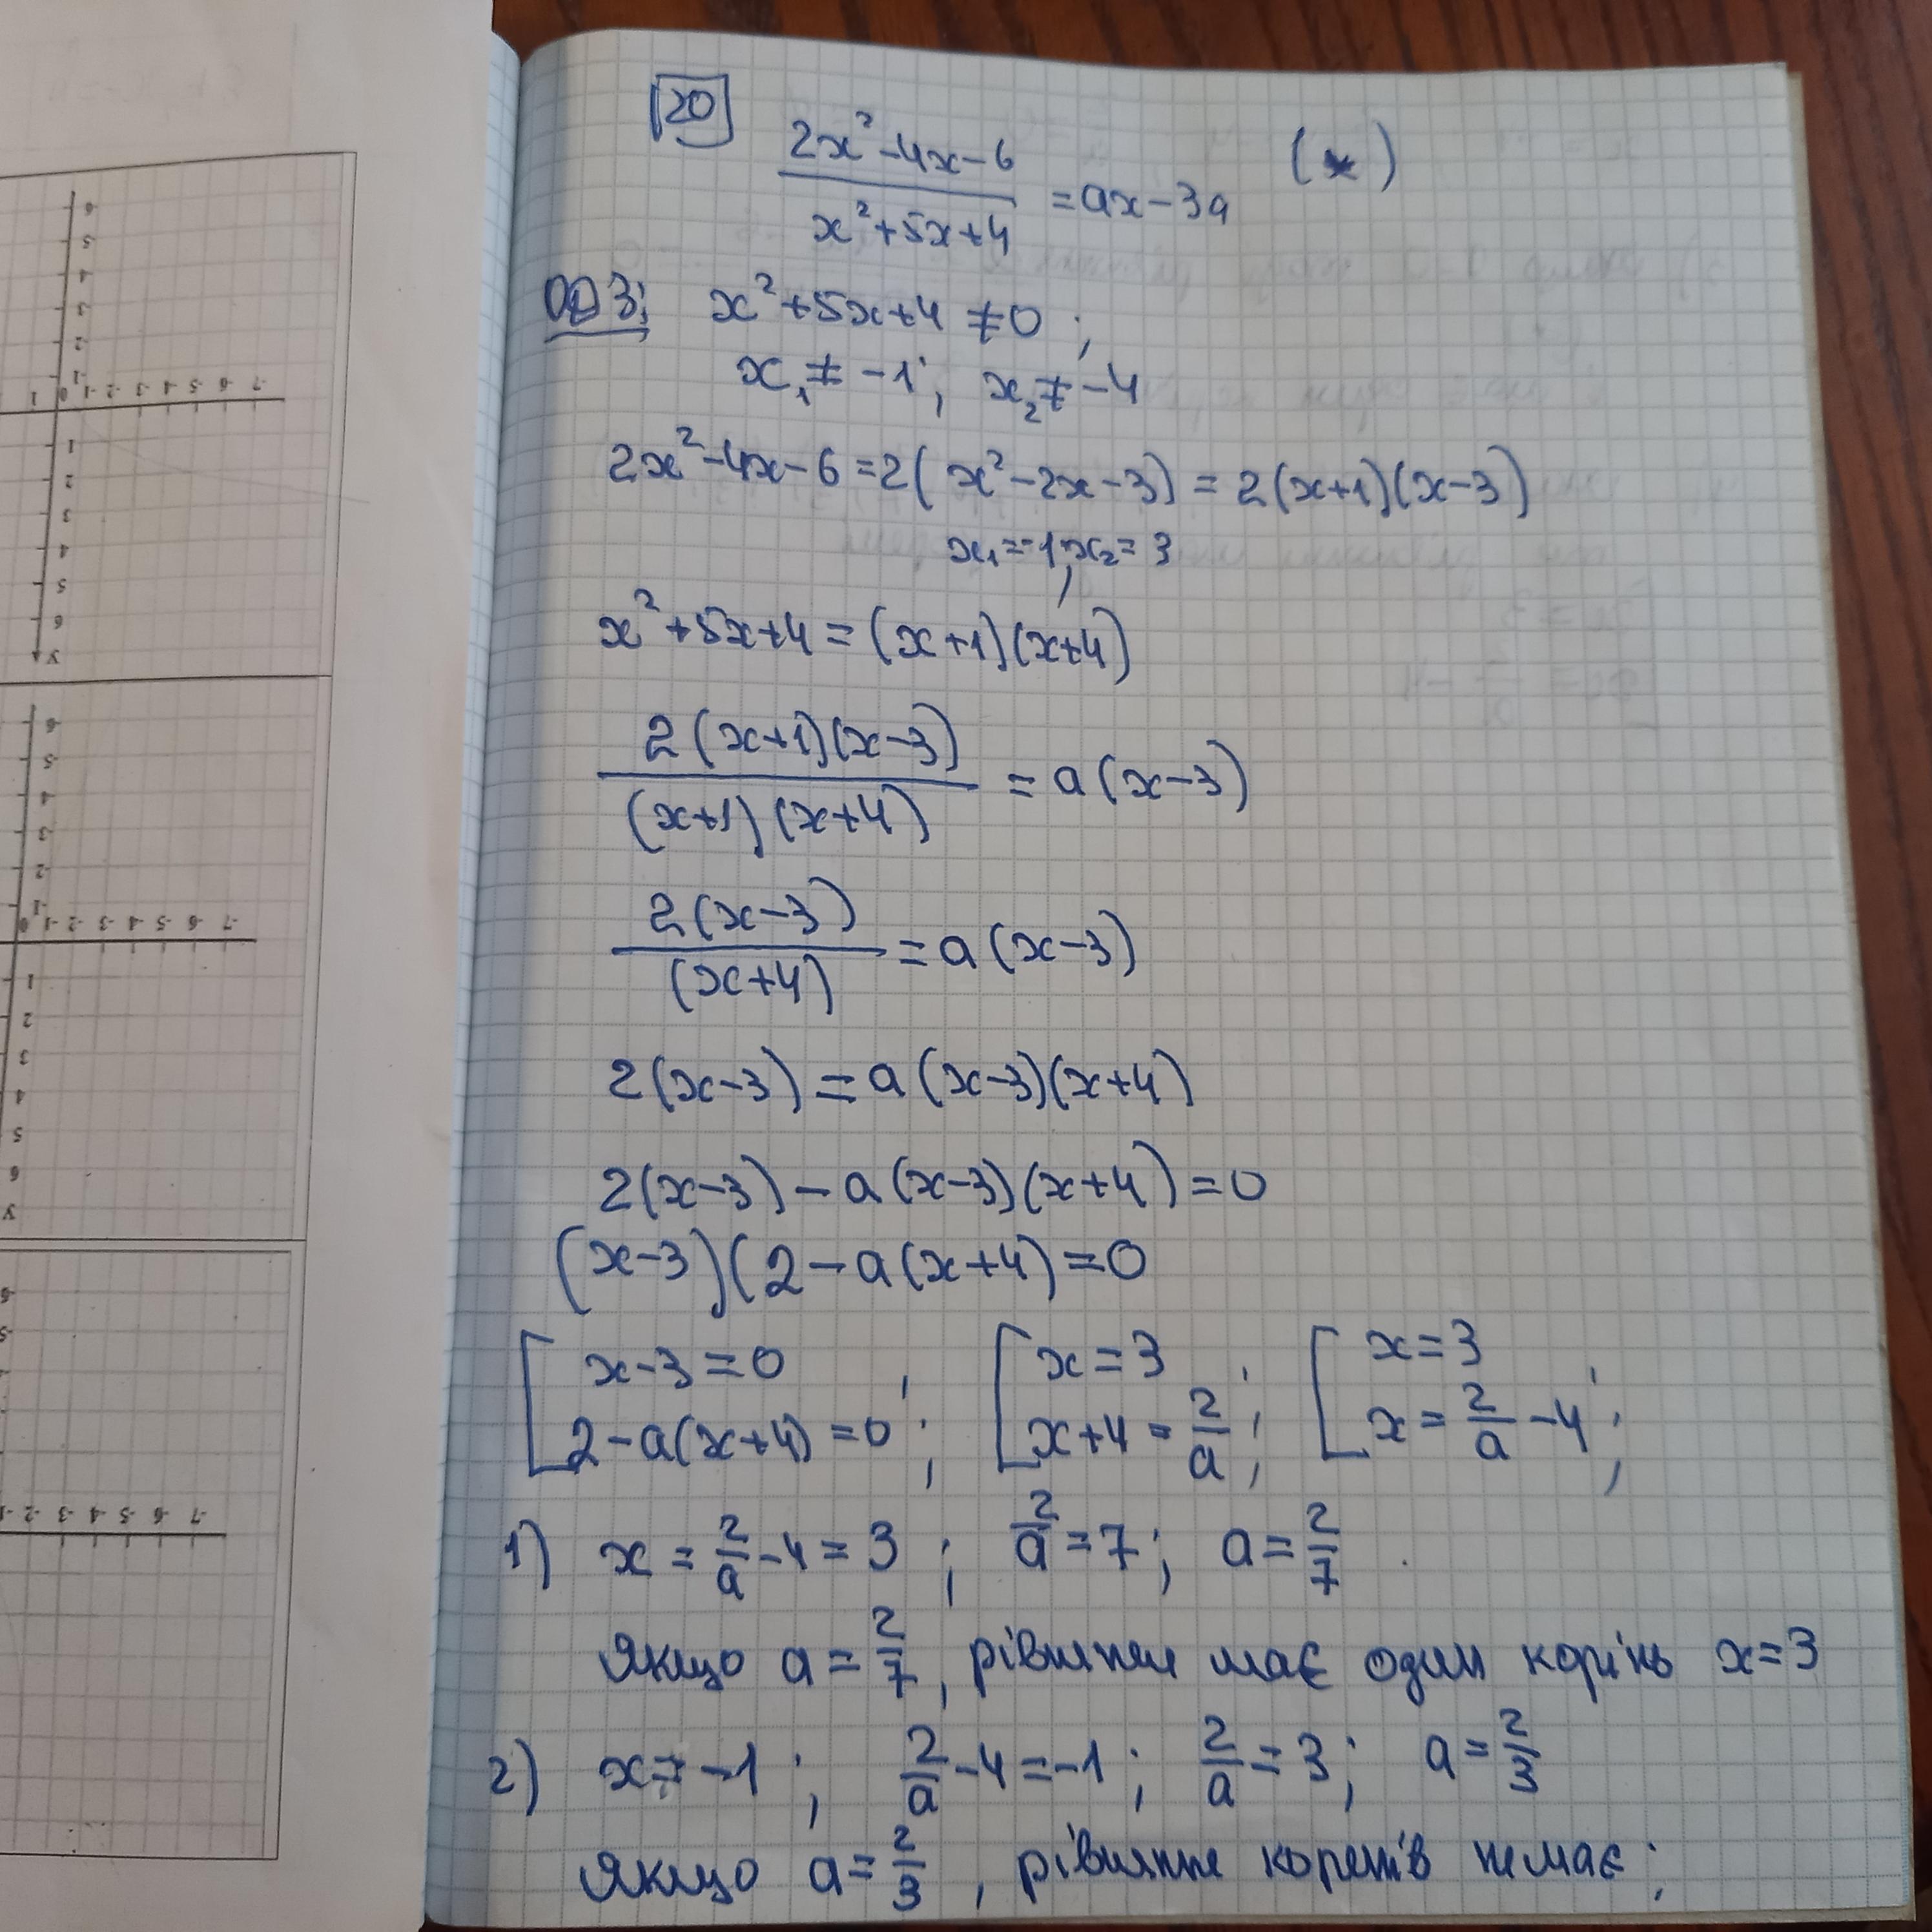 20
(2x² - 4x - 6)/(x² + 5x + 4) = ax - 3a (*)
ОДЗ; x² + 5x + 4 ≠ 0;
x₁ ≠ -1; x₂ ≠ -4
2x² - 4x - 6 = 2(x² - 2x - 3) = 2(x+1)(x-3)
x₁ = -1, x₂ = 3
x² + 5x + 4 = (x+1)(x+4)
2(x+1)(x-3)/((x+1)(x+4)) = a(x-3)
2(x-3)/(x+4) = a(x-3)
2(x-3) = a(x-3)(x+4)
2(x-3) - a(x-3)(x+4) = 0
(x-3)(2 - a(x+4) = 0
[ x-3 = 0 ; [ x = 3 ; [ x = 3 ;
2 - a(x+4) = 0 ; x+4 = 2/a ; x = 2/a - 4 ;
1) x = 2/a - 4 = 3 ; 2/a = 7 ; a = 2/7 .
Якщо a = 2/7, рівняння має один корінь x = 3
2) x = -1 ; 2/a - 4 = -1 ; 2/a = 3 ; a = 2/3
Якщо a = 2/3, рівняння коренів немає ;